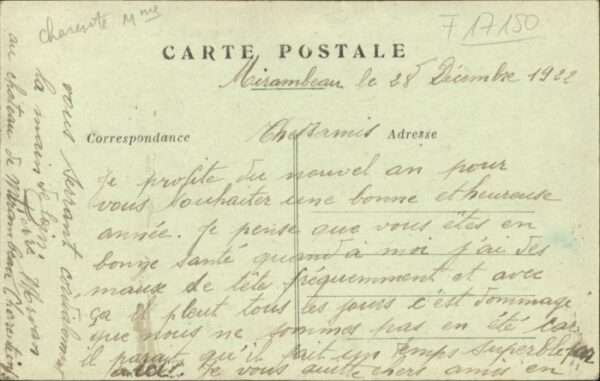 Charente Mme
F 17150
CARTE POSTALE
Mirambeau le 28 Décembre 1922
Correspondance
Adresse
Chers amis
Je profite du nouvel an pour
vous souhaiter une bonne et heureuse
année. Je pense que vous êtes en
bonne santé quand à moi j'ai des
maux de tête fréquemment et avec
ça il pleut tous les jours c'est dommage
que nous ne sommes pas en été car
il parait qu'il fait un temps superbe
Je vous quitte chers amis en
vous serrant cordialement
la main
au chateau de Mirambeau